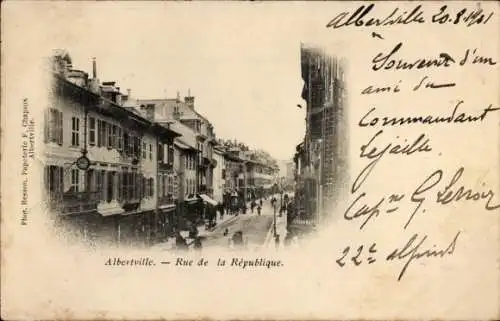 Albertville 20.8.1901
Souvenir d'un
ami du
Commandant
Lejaille.
Cap.ne G. Leroir
22.e alpins
Phot. Reynon, Papeterie F. Chapuis
Albertville.
Albertville. — Rue de la République.